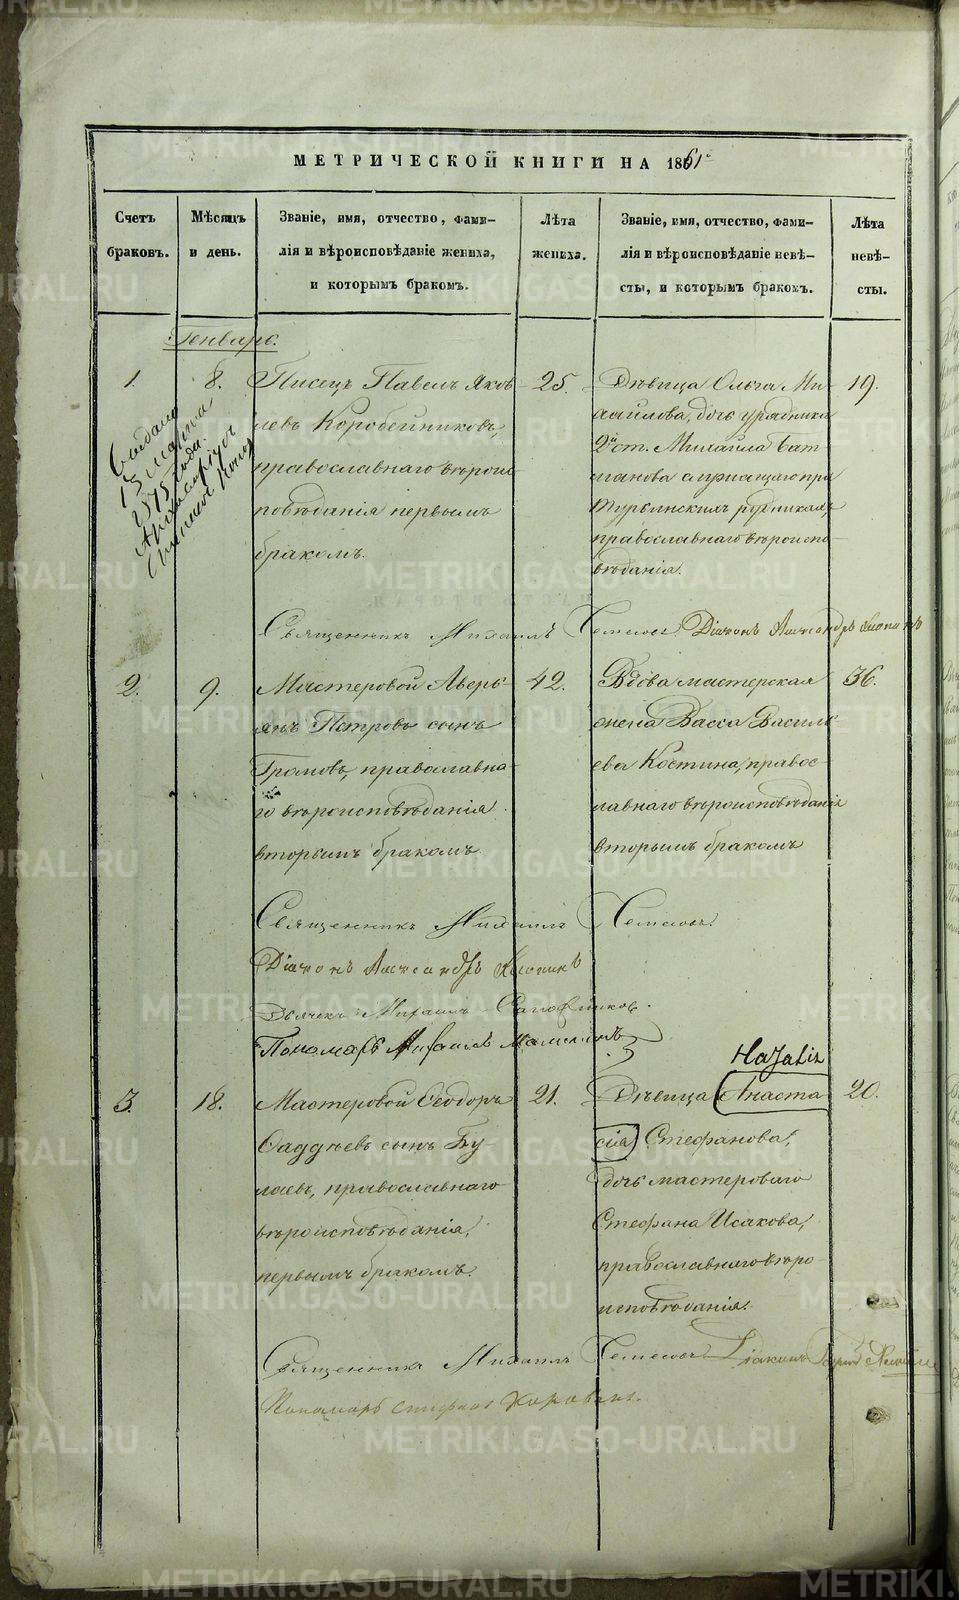 МЕТРИЧЕСКОЙ КНИГИ НА 1861
Счетъ браковъ.
Мѣсяцъ и день.
Званіе, имя, отчество, фами-
лія и вѣроисповѣданіе жениха,
и которымъ бракомъ.
Лѣта жениха.
Званіе, имя, отчество, фами-
лія и вѣроисповѣданіе невѣ-
сты, и которымъ бракомъ.
Лѣта невѣ-
сты.
Генварь.
1.
8.
Писецъ Павелъ Яков
левъ Коробейниковъ,
православнаго вѣроис
повѣданія первымъ
бракомъ.
25.
Дѣвица Ольга Ми
хайлова, дочь урядника
2й ст. Михайла Бат
манова служащаго при
Турьинскихъ рудникахъ,
православнаго вѣроиспо
вѣданія.
19.
марта
1875 года.
Священникъ Михаилъ Діаконъ Александръ
2.
9.
Мастеровой Аверь-
янъ Петровъ сынъ
Громовъ, православна-
го вѣроисповѣданія
вторымъ бракомъ.
42.
Вдова мастерская
жена Васса Василь
ева Костина, право-
славнаго вѣроисповѣданія
вторымъ бракомъ
36.
Священникъ Михаилъ
Діаконъ Александръ
Дьячекъ Михаилъ
Пономарь
3.
18.
Мастеровой Ѳеодоръ
Фаддѣевъ сынъ Бу
лаевъ, православнаго
вѣроисповѣданія,
первымъ бракомъ.
21.
Наталія
Дѣвица Анаста
сія Стефанова,
дочь мастероваго
Стефана Исакова,
православнаго вѣро
исповѣданія.
20.
Священникъ Михаилъ Діаконъ
Пономарь Стефанъ
METRIKI.GASO-URAL.RU